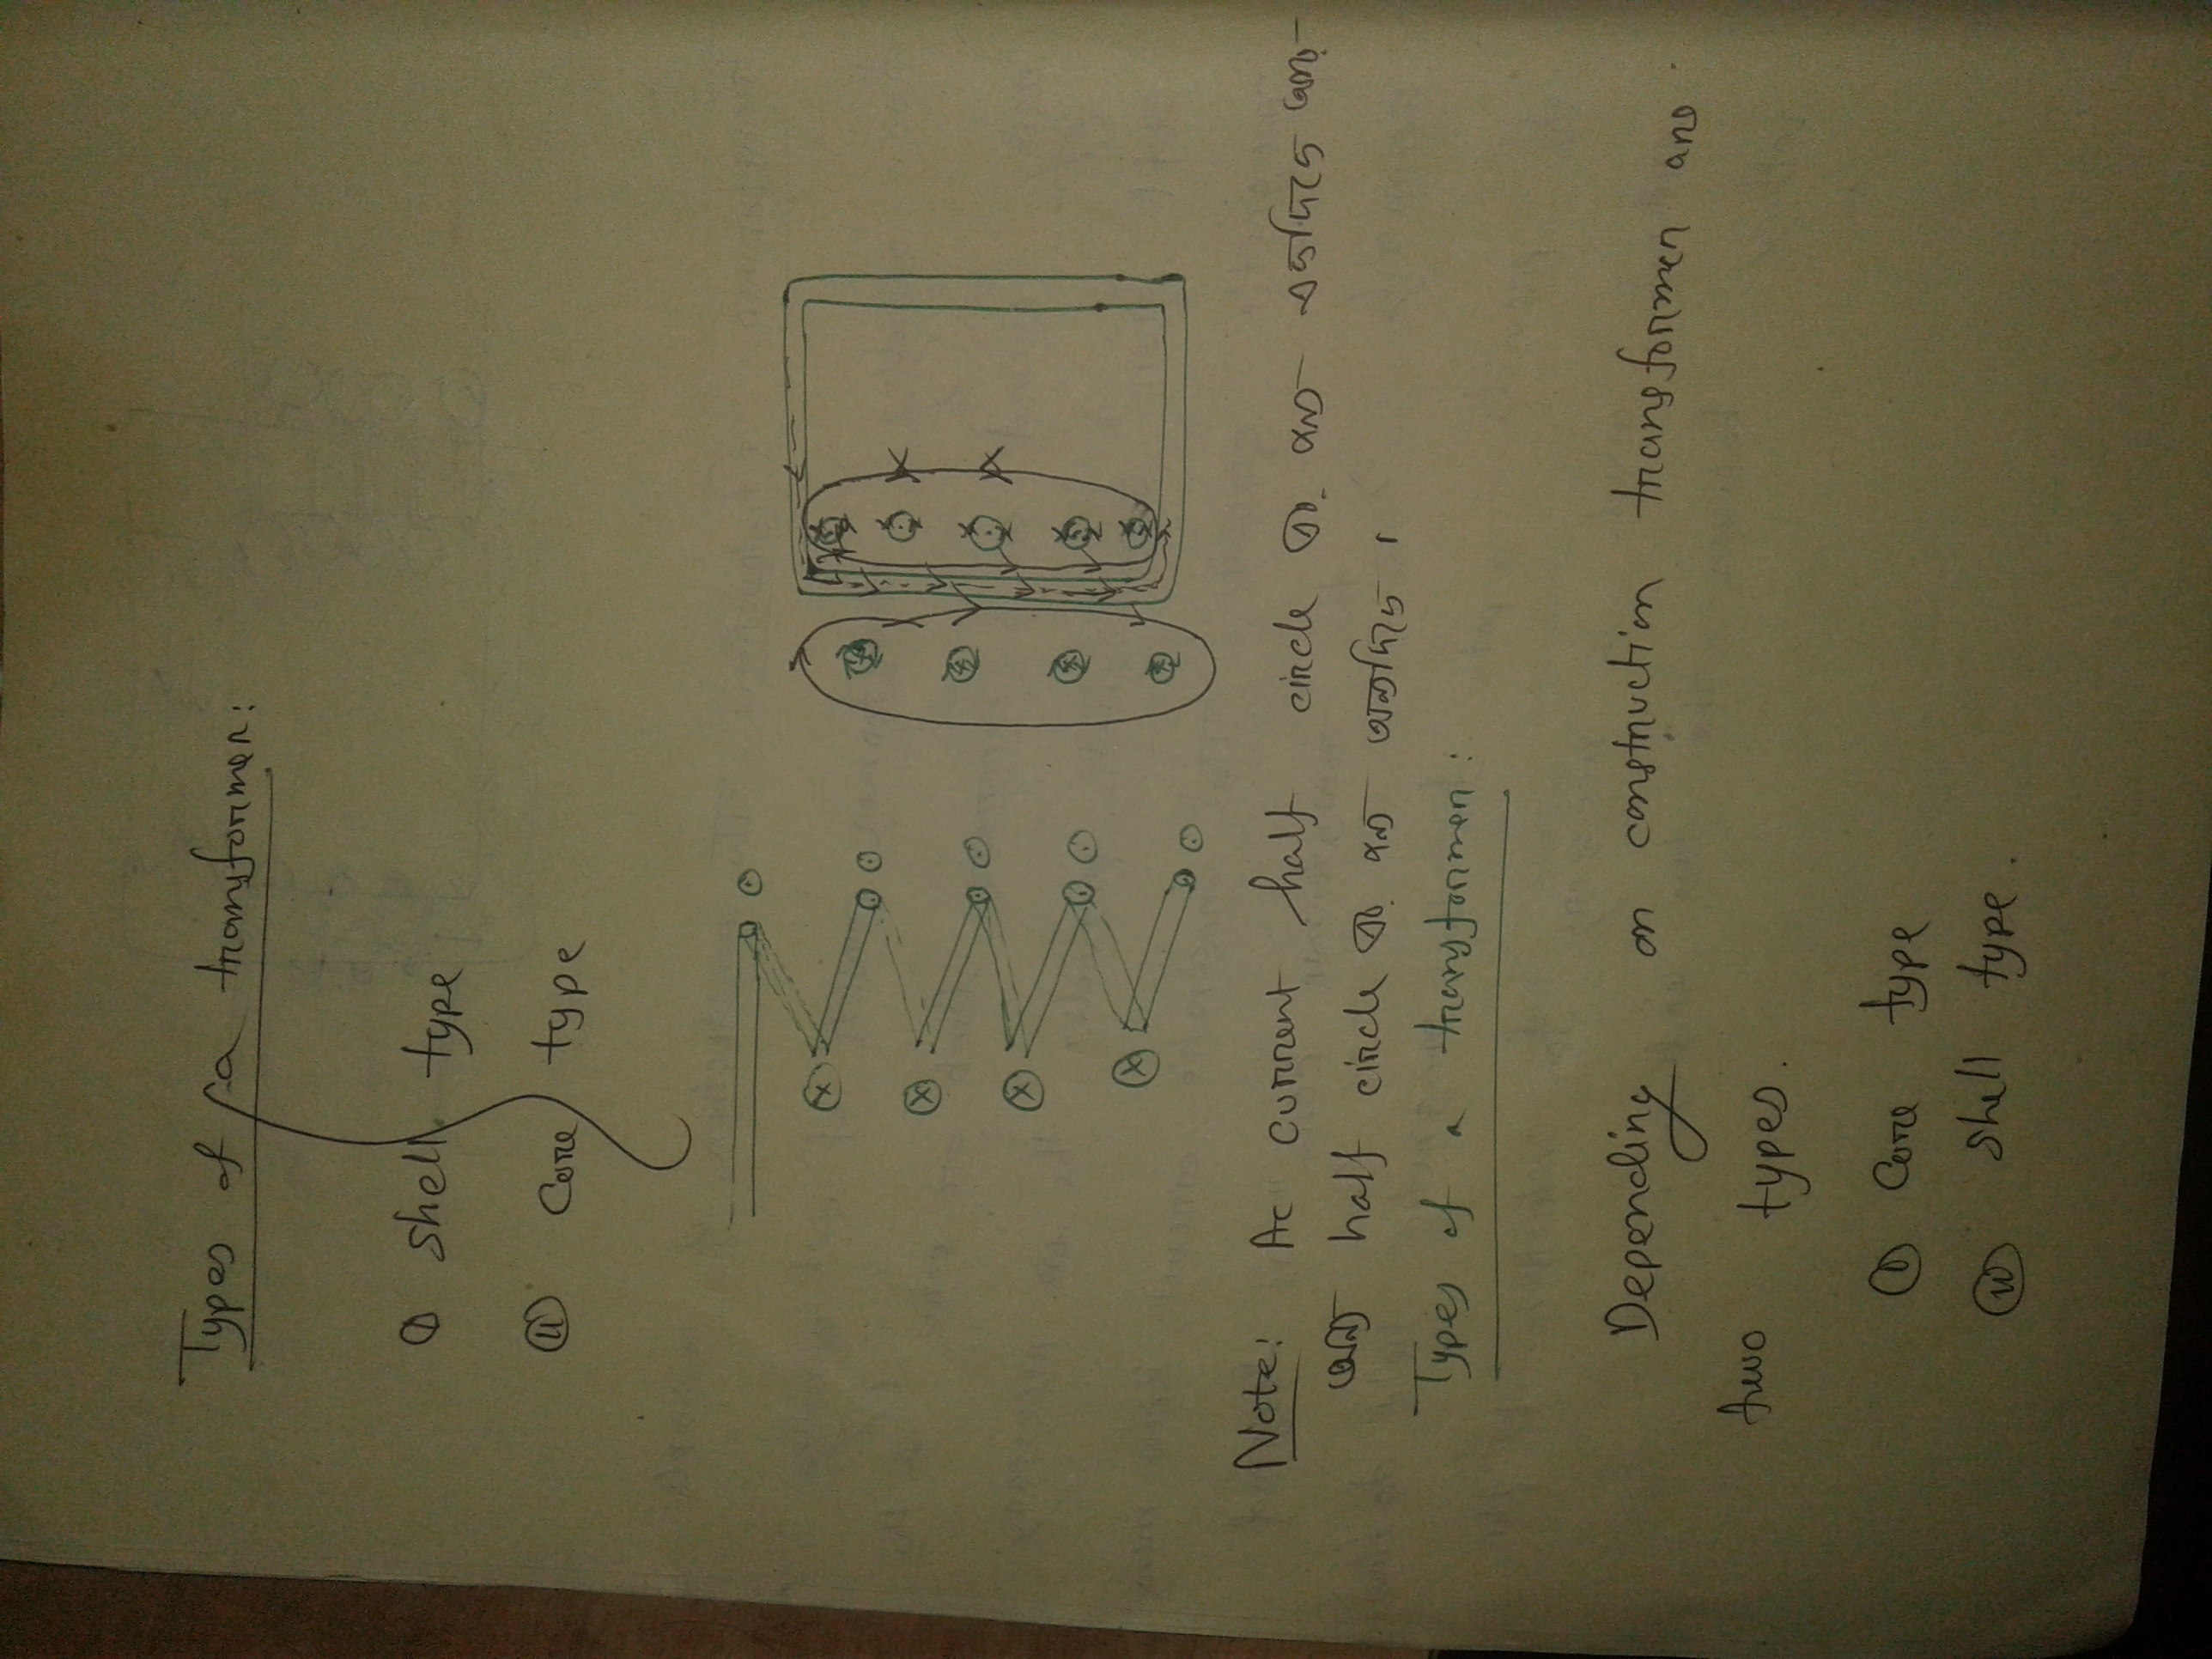 Types of a transformer:
① Shell type
② Core type
Note: Ac current half circle এর জন্য একদিকে
অন্য half circle এর জন্য অন্যদিকে ।
Types of a transformer:
Depending on construction transformer are
two types.
① Core type
② Shell type.